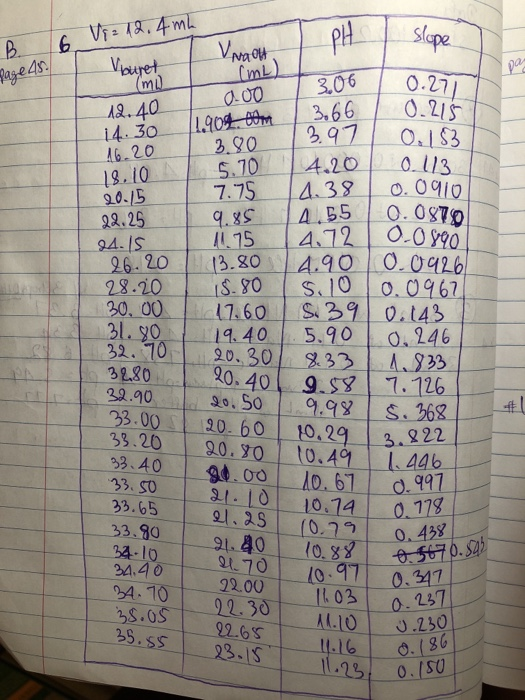 B 6 Vi = 12.4 mL
page 45.
Vburet (mL) VNaOH (mL) pH Slope
12.40 0.00 3.06 0.271
14.30 1.90 3.66 0.215
16.20 3.80 3.97 0.153
18.10 5.70 4.20 0.113
20.15 7.75 4.38 0.0910
22.25 9.85 4.55 0.0870
24.15 11.75 4.72 0.0890
26.20 13.80 4.90 0.0926
28.20 15.80 5.10 0.0967
30.00 17.60 5.39 0.143
31.80 19.40 5.90 0.246
32.70 20.30 8.33 1.833
32.80 20.40 9.58 7.726
32.90 20.50 9.98 5.368
33.00 20.60 10.29 3.822
33.20 20.80 10.49 1.446
33.40 21.00 10.67 0.997
33.50 21.10 10.74 0.778
33.65 21.25 10.79 0.438
33.80 21.40 10.88 0.567 0.543
34.10 21.70 10.97 0.347
34.40 22.00 11.03 0.237
34.70 22.30 11.10 0.230
35.05 22.65 11.16 0.186
35.55 23.15 11.23 0.150